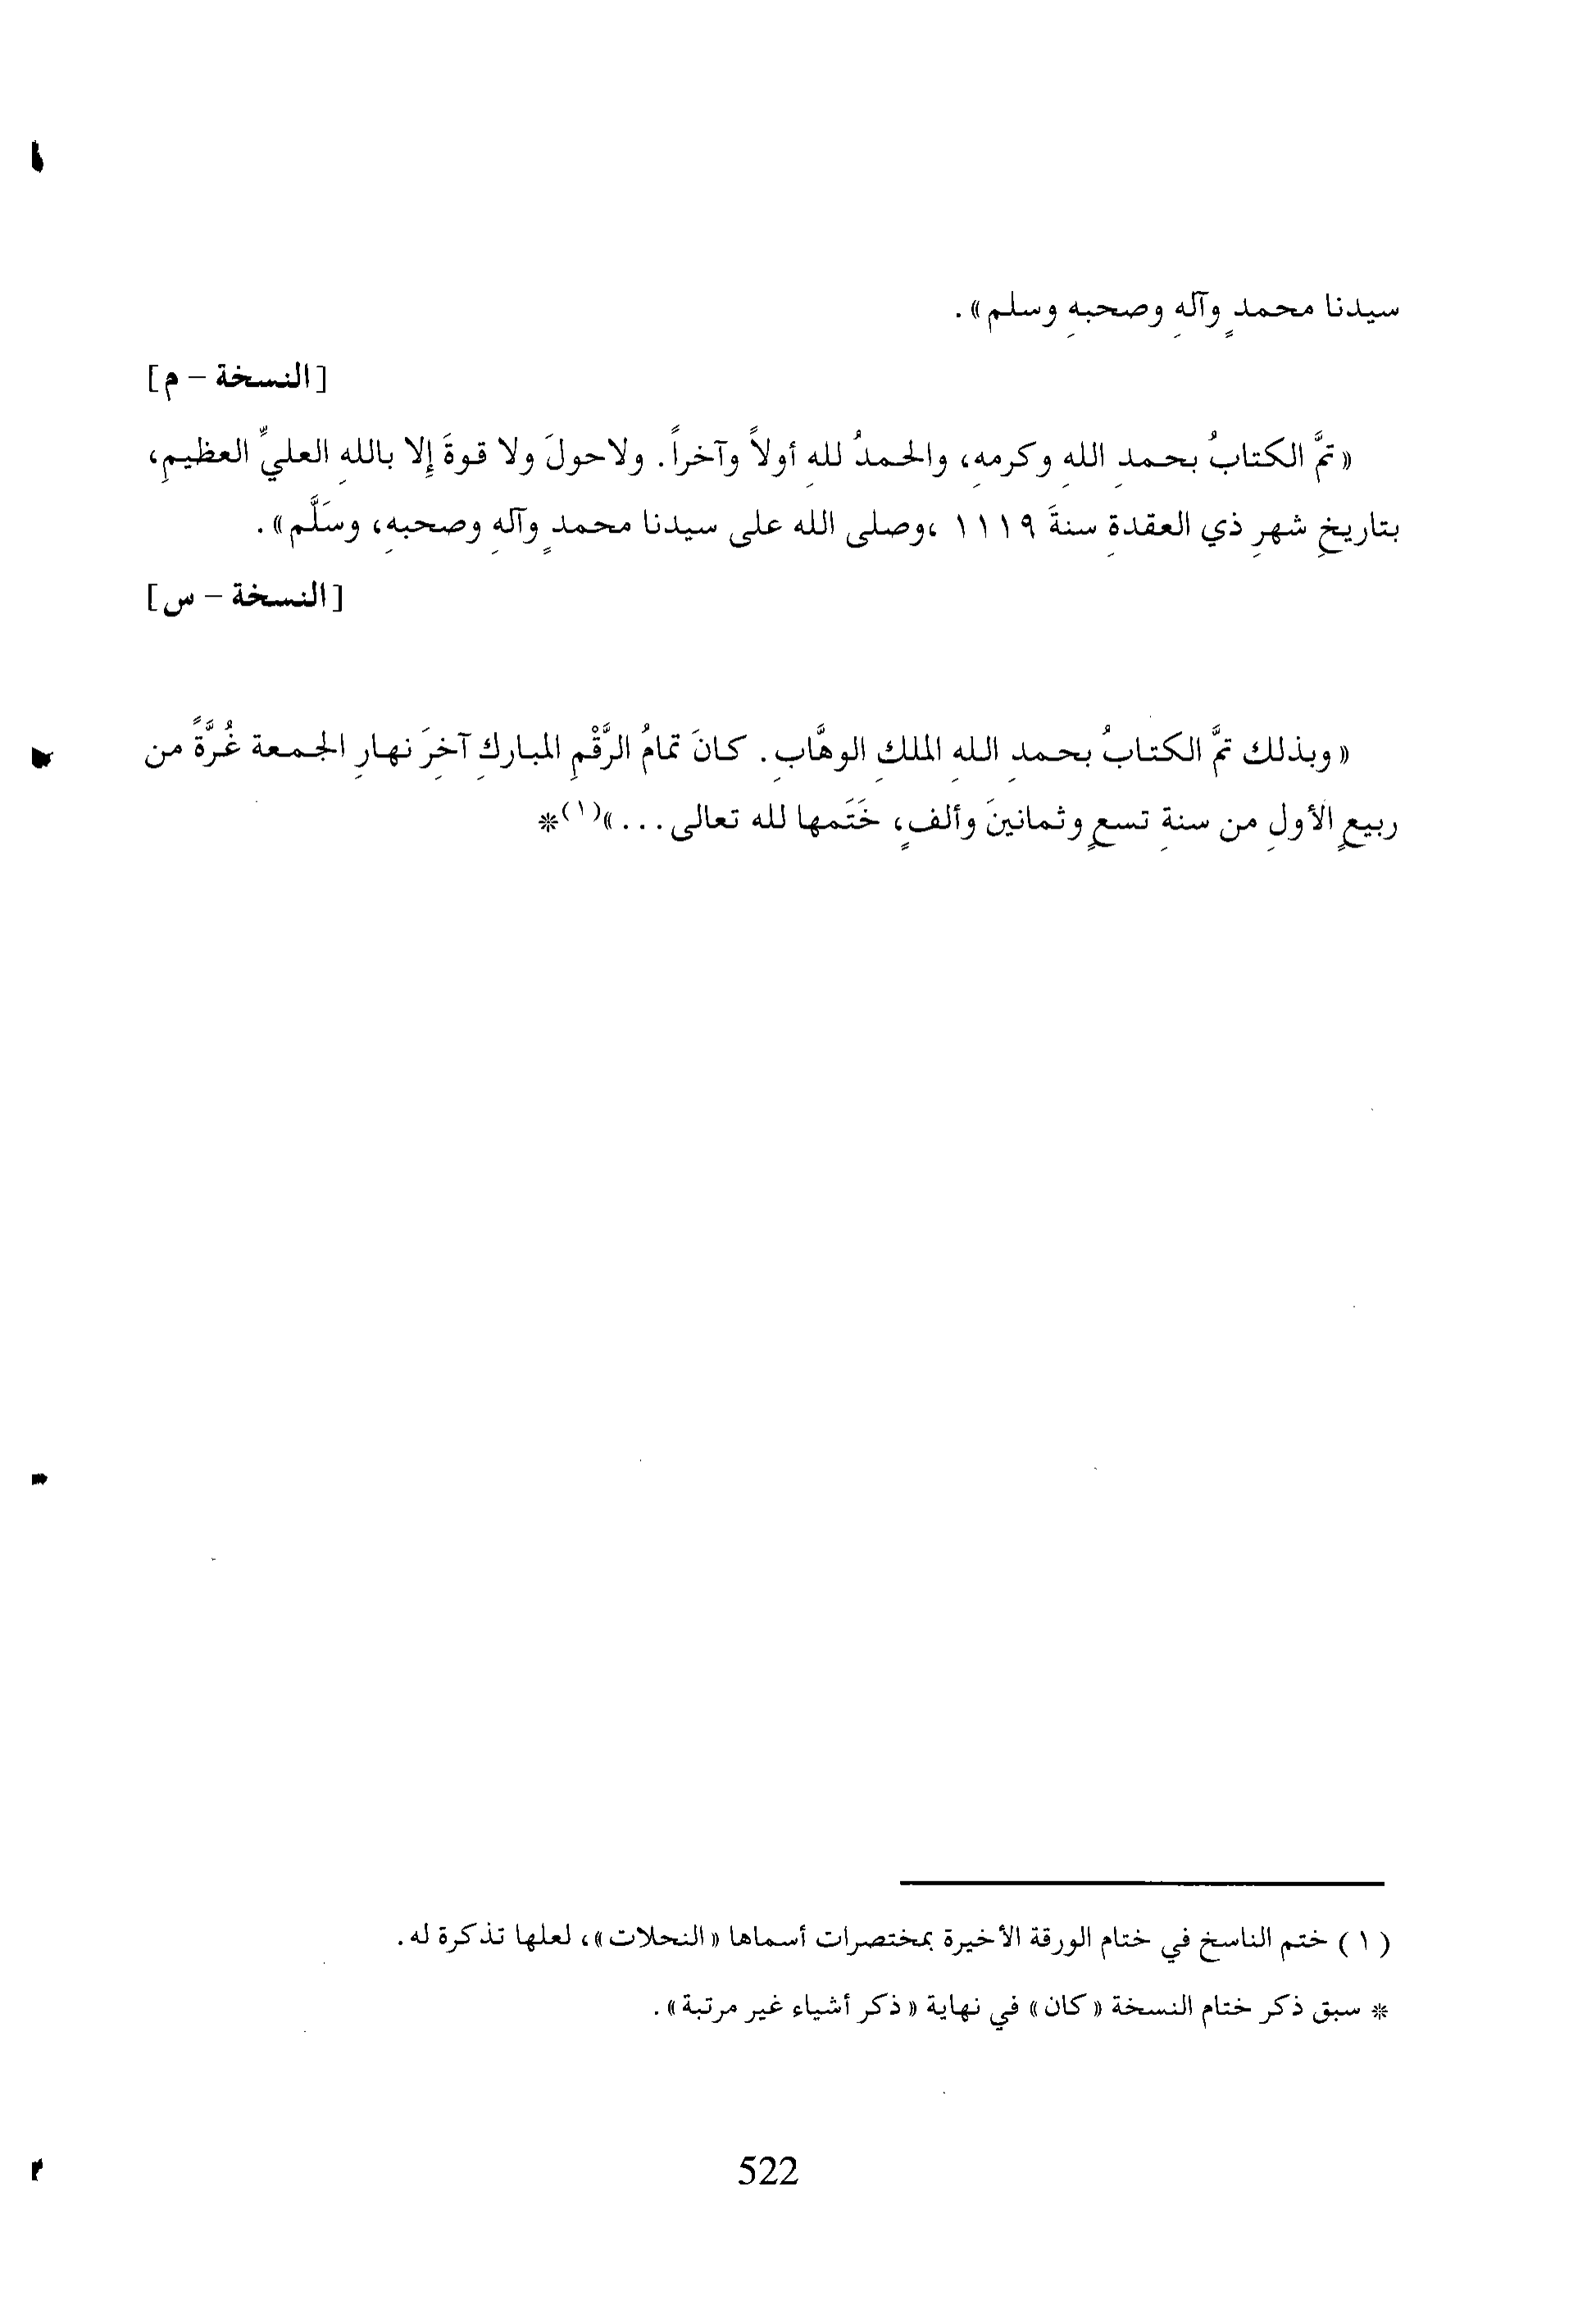 سيدنا محمدٍ وآلهِ وصحبهِ وسلم».
[النسخة – م]
«تمَّ الكتابُ بحمدِ اللهِ وكرمهِ، والحمدُ للهِ أولاً وآخراً. ولاحولَ ولا قوةَ إلا باللهِ العليِّ العظيمِ،
بتاريخِ شهرِ ذي العقدةِ سنةَ ١١١٩ ،وصلى الله على سيدنا محمدٍ وآلهِ وصحبهِ، وسَلَّم».
[النسخة – س]
«وبذلك تمَّ الكتابُ بحمدِ اللهِ الملكِ الوهَّابِ. كانَ تمامُ الرَّقْمِ المباركِ آخِرَ نهارِ الجمعة غُرَّةً من
ربيعٍ الأولِ من سنةِ تسعٍ وثمانينَ وألفٍ، خَتَمها لله تعالى...»(١)*
(١) ختم الناسخ في ختام الورقة الأخيرة بمختصرات أسماها «النحلات»، لعلها تذكرة له.
* سبق ذكر ختام النسخة «كان» في نهاية «ذكر أشياء غير مرتبة».
522